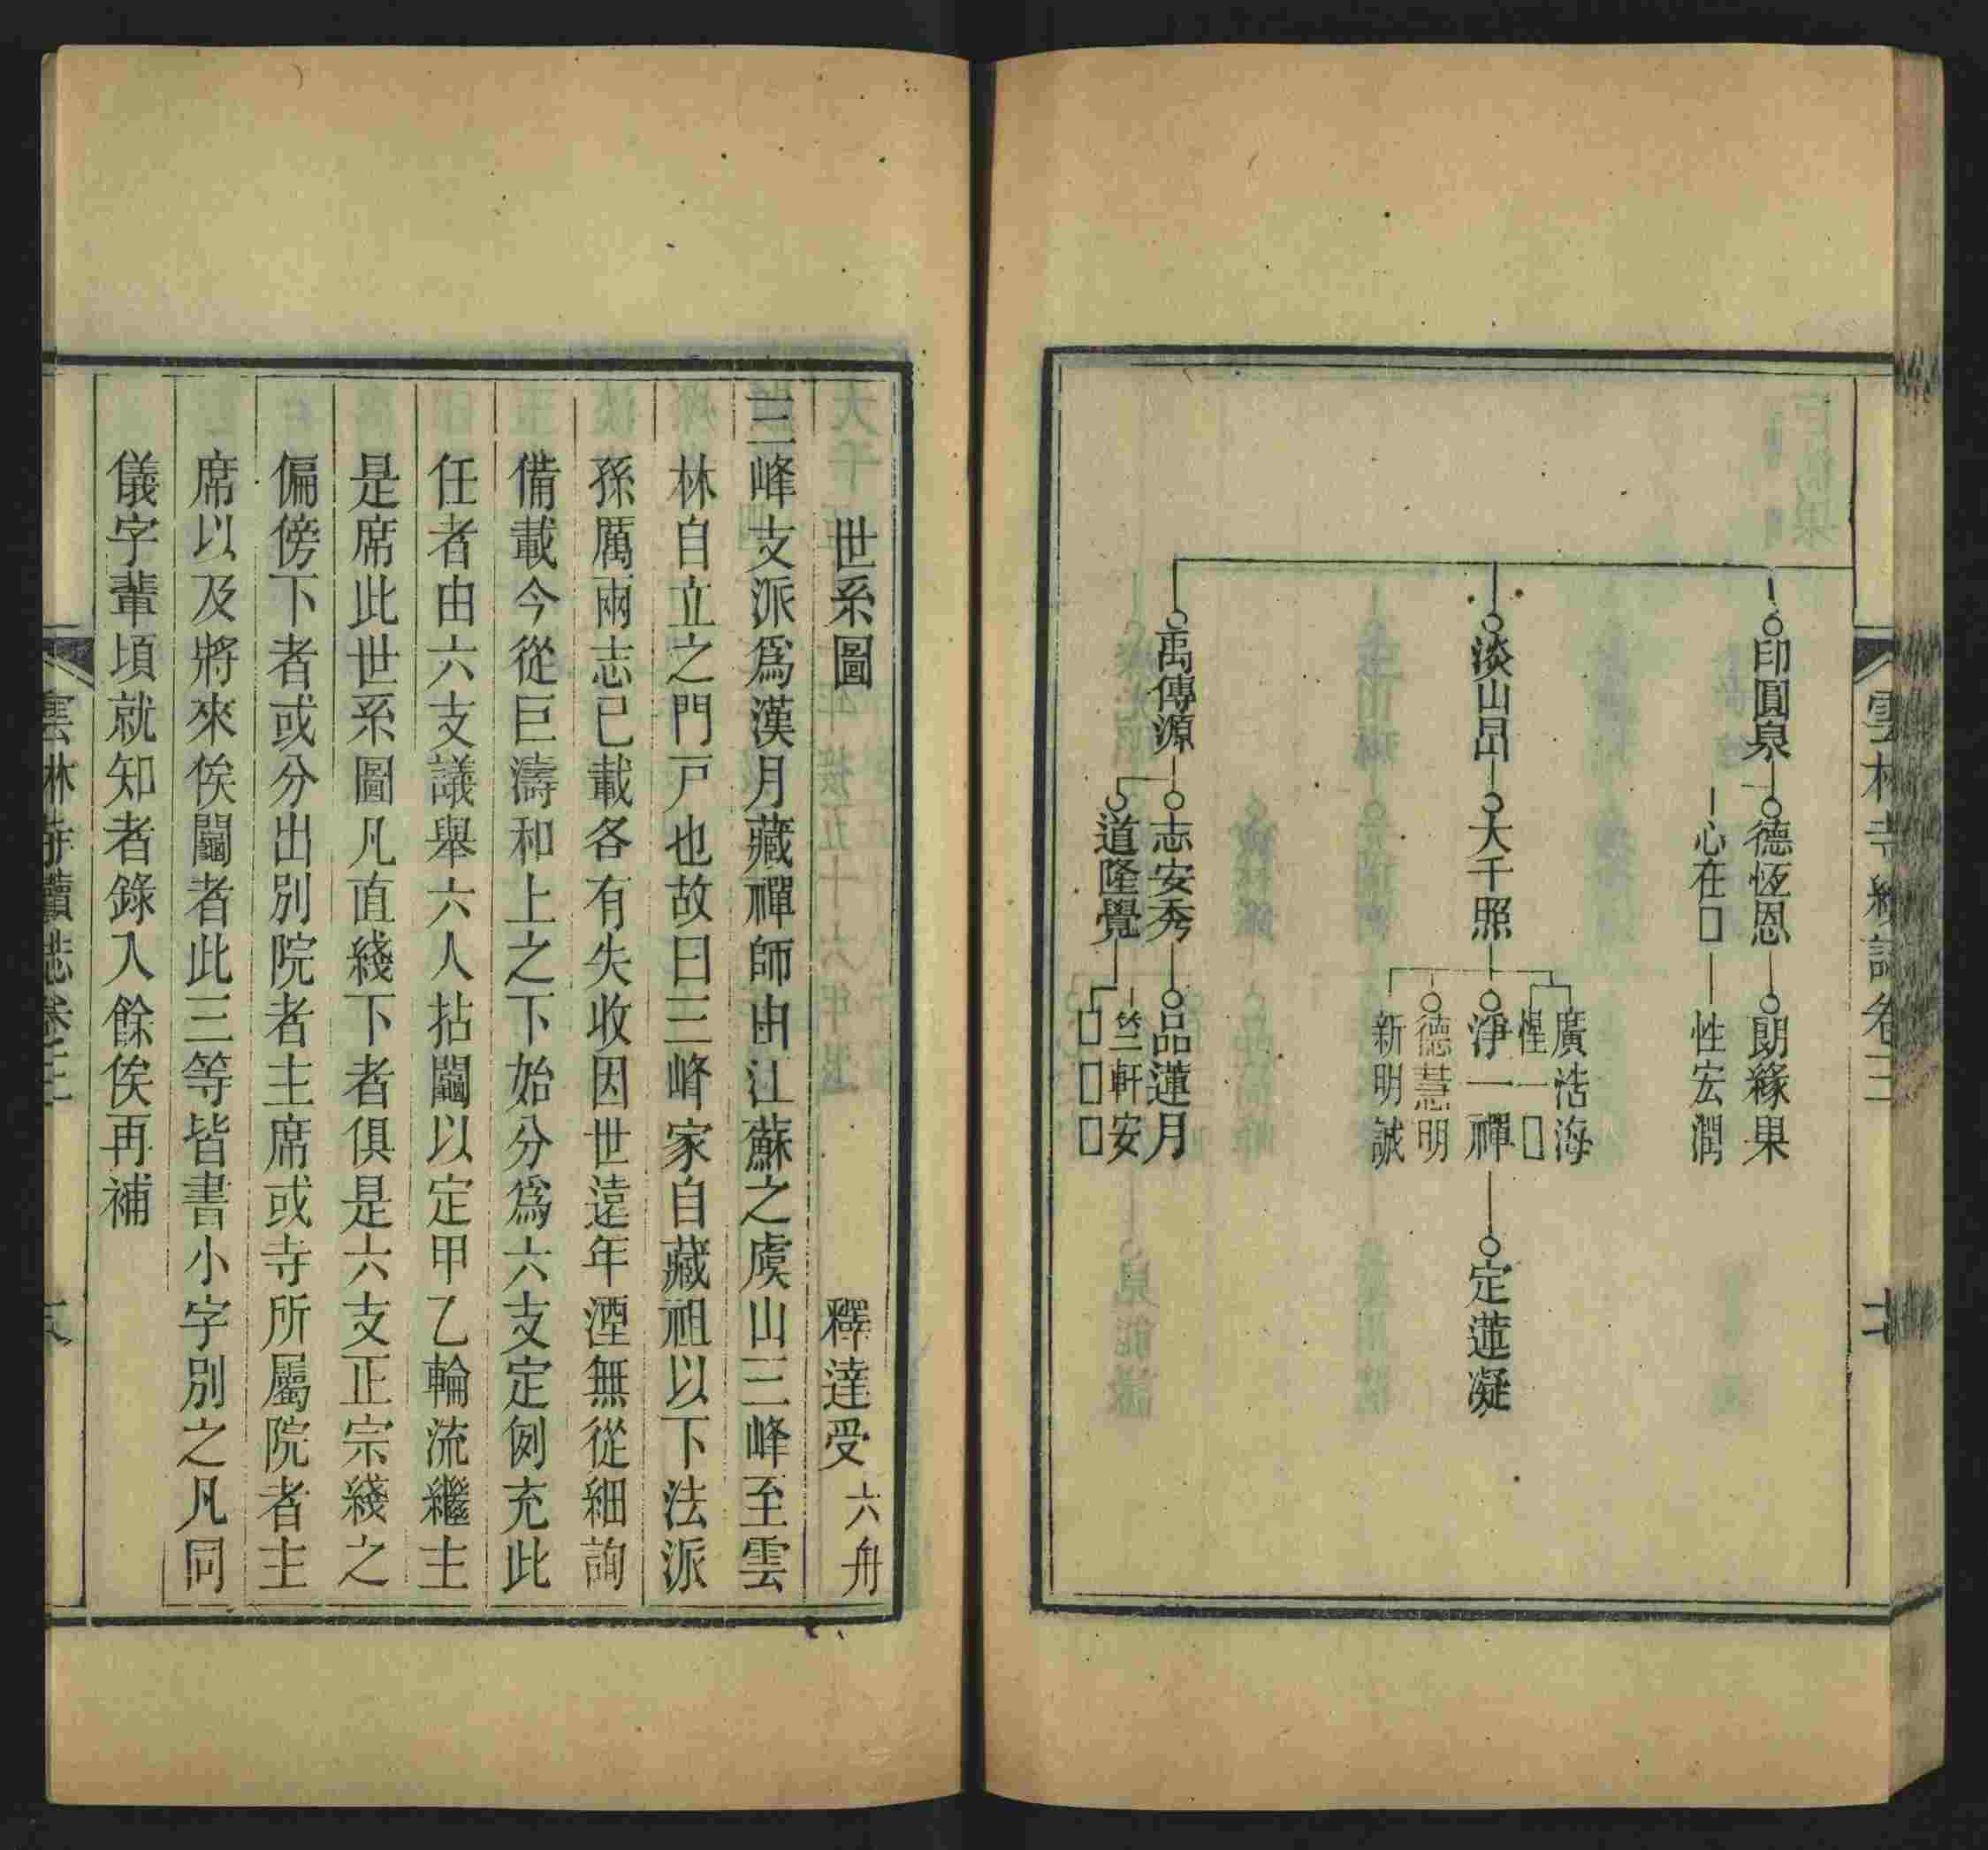 雲林寺續誌卷二
印圓泉
德恆恩
朗緣果
心在□
性宏潤
淡山昌
大千照
廣浩海
惺一□
淨一禪
德慧明
新明誠
定蓮凝
禹傳源
志安秀
品蓮月
竺軒安
道隆覺
□□□
世系圖 釋達受 六舟
三峰支派爲漢月藏禪師由江蘇之虞山三峰至雲
林自立之門戶也故曰三峰家自藏祖以下法派
孫厲兩志已載各有失收因世遠年湮無從細詢
備載今從巨濤和上之下始分爲六支定例充此
任者由六支議舉六人拈鬮以定甲乙輪流繼主
是席此世系圖凡直綫下者俱是六支正宗綫之
偏傍下者或分出別院者主席或寺所屬院者主
席以及將來俟鬮者此三等皆書小字別之凡同
儀字輩頃就知者錄入餘俟再補
雲林寺續誌卷二